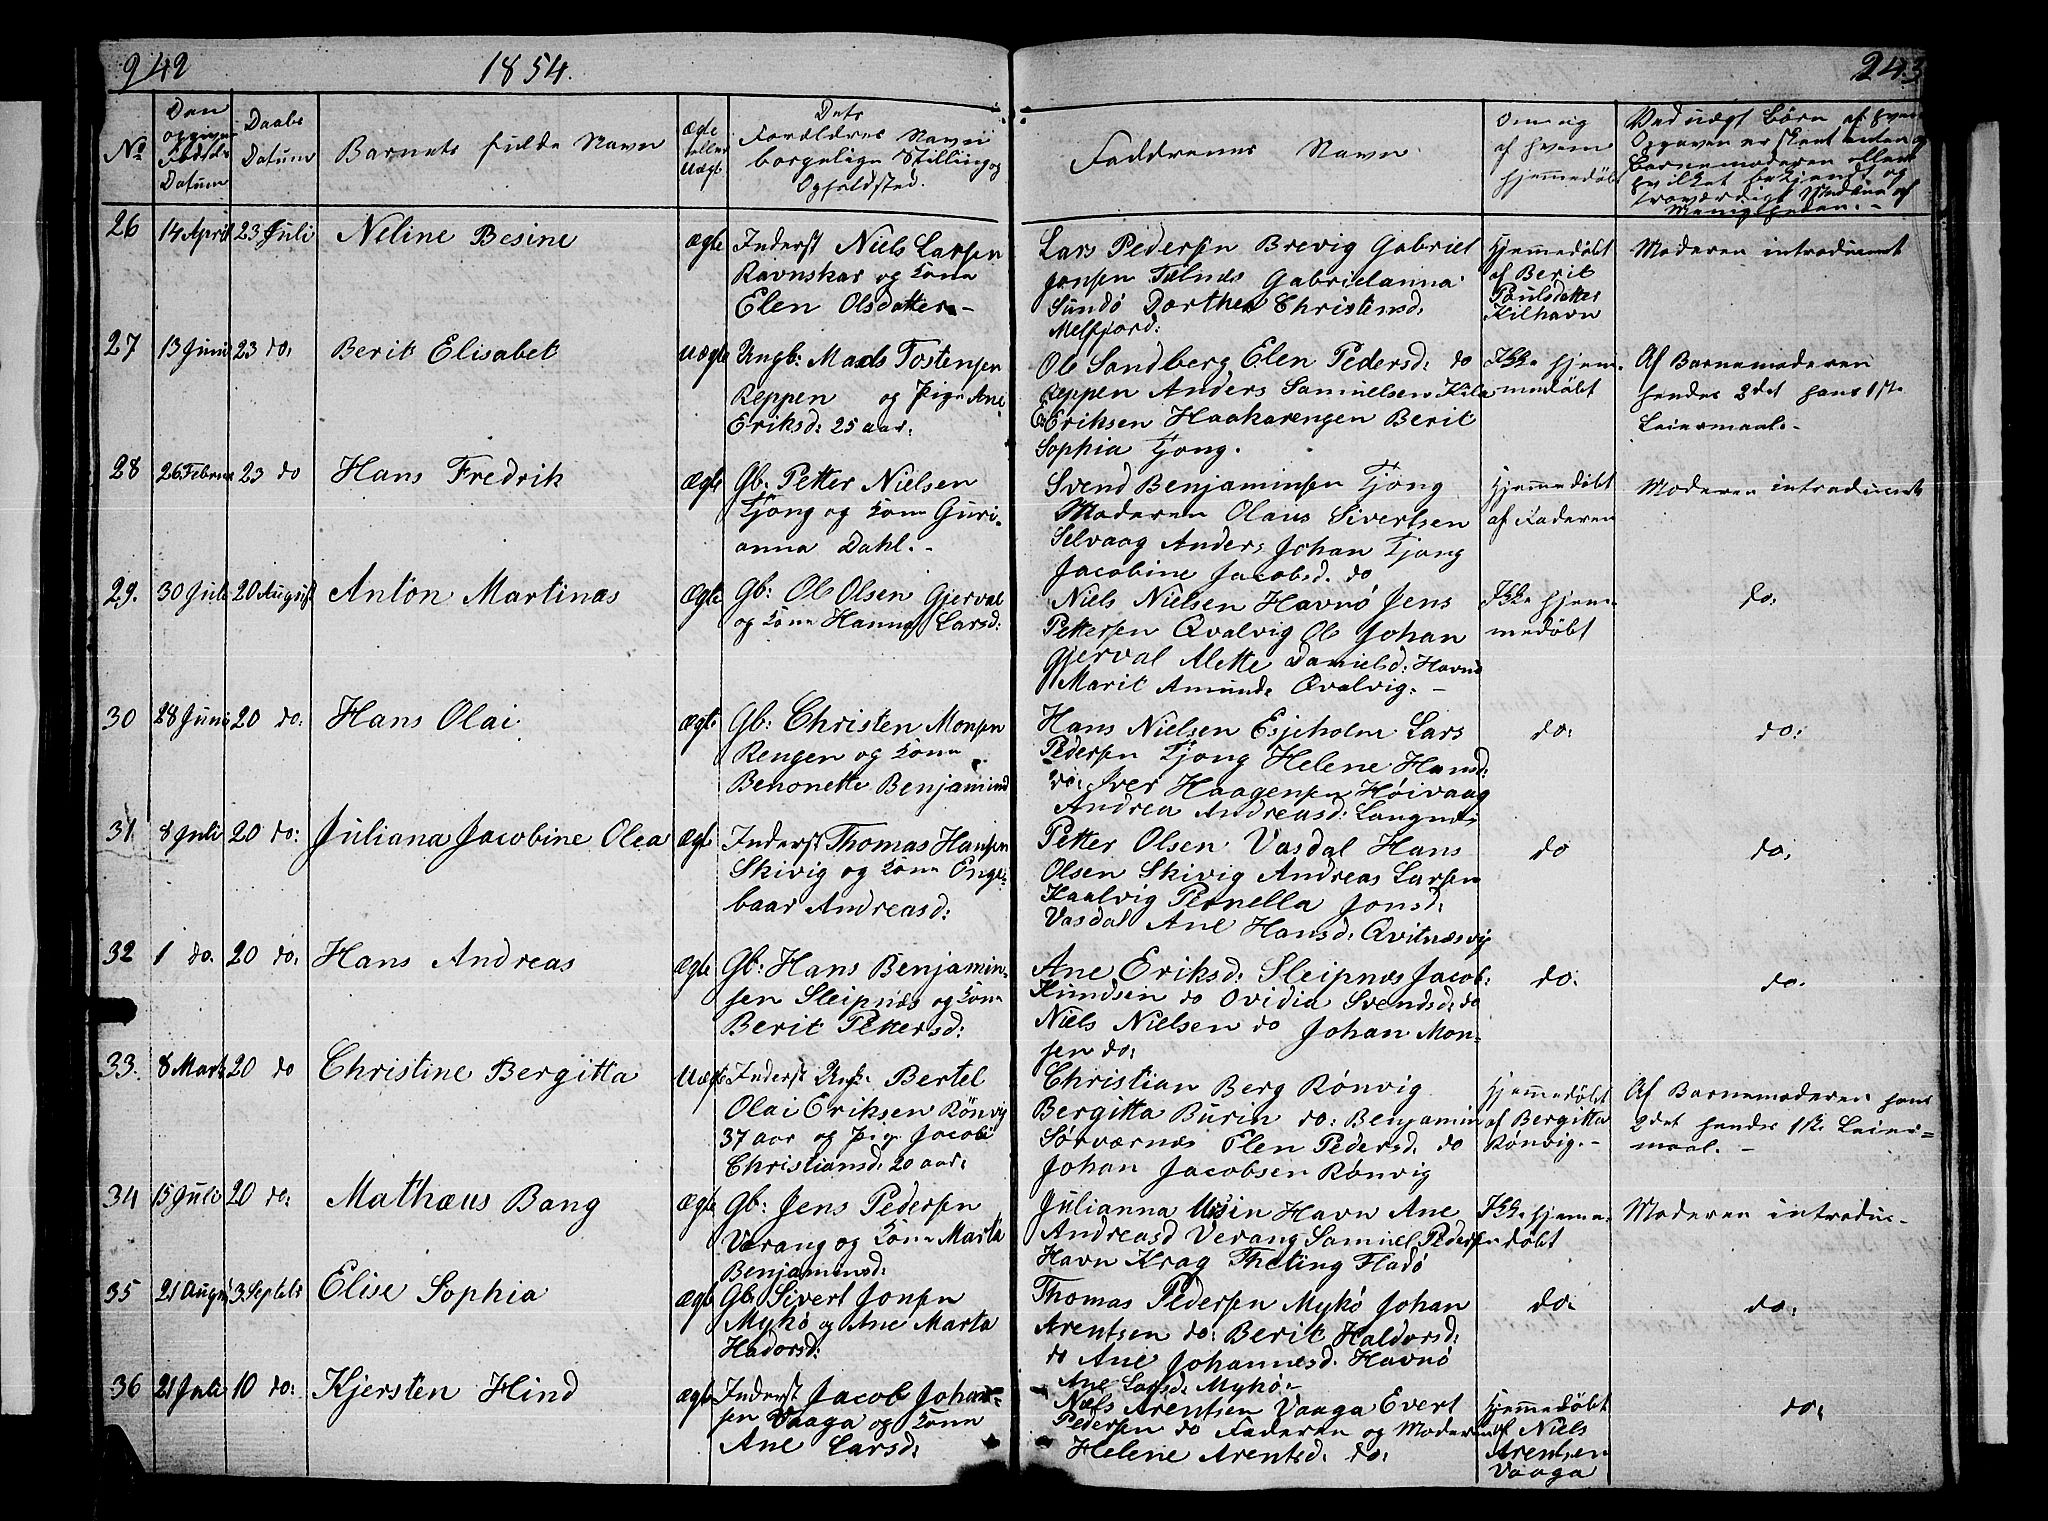 242
1854.
243
No
Den opgivne Fødsels Datum
Daabs Datum
Barnets fulde Navn
Ægte eller Uægt
Dets Forældres Navn borgelige Stilling og Opholdsted.
Faddrenes Navn
Om og af hvem hjemmedøbt
Ved uægt Børn af hvem Opgaven er skeet enten af Barnemoderen eller hvilket bekjendt og troværdigt Medlem af Menigheden.-
26 14 April 23 Juli Neline Besine ægte Inderst Niels Larsen
Ravnskar og Kone
Elen Olsdatter.-
Lars Pedersen Brevig Gabriel
Jonsen Telnes Gabrielanna
Sundø Dorthea Christensd.
Melfjord:
Hjemmedøbt
af Berit
Paulsdatter
Kilhavn
Moderen introduceret
27 13 Juni 23 do: Berit Elisabet uægte Ungk: Mads Tostensen
Reppen og Pige Ane
Eriksd: 25 aar:
Ole Sandberg Elen Pedersd: do
Reppen Anders Samuelsen Kila
Eriksen Haakarengen Berit
Sophia Tjong.
Ikke hjem-
medøbt
Af Barnemoderen
hendes 2det hans 1ste
Leiermaal.-
28 26 Februar 23 do Hans Fredrik ægte Gb: Petter Nielsen
Tjong og Kone Guri-
anna Dahl.-
Svend Benjaminsen Tjong
Moderen Olaus Sivertsen
Selvaag Anders Johan Tjong
Jacobine Jacobsd. do
Hjemmedøbt
af Faderen
Moderen introduceret
29. 30 Juli 20 August Anton Martinæs Ægte Gb: Ole Olsen Gjerval
og Kone Hanna Larsd:
Niels Nielsen Havnø Jens
Pettersen Qvalvig Ole Johan
Gjerval Alette Danielsd: Havnø
Marit Amunds Qvalvig.-
Ikke hjem-
medøbt
do:
30 28 Juni 20 do: Hans Olai ægte Gb: Christen Monsen
Rengen og Kone
Benonette Benjamind
Hans Nielsen Esjeholm Lars
Pedersen Tjong Helene Hansd:
do: Iver Haagensen Høivaag
Andrea Andreasd: Langnes
do:
do:
31 8 Juli 20 do: Juliana Jacobine Olea ægte Inderst Thomas Hansen
Skivig og Kone Enge-
baar Andreasd:
Petter Olsen Vasdal Hans
Olsen Skivig Andreas Larsen
Kaalvig Pernella Jonsd:
Vasdal Ane Hansd: Qvitnesvig
do
do:
32 1 do. 20 do: Hans Andreas ægte Gb: Hans Benjamin-
sen Sleipnæs og Kone
Berit Pettersd:
Ane Eriksd: Sleipnæs Jacob
Knudsen do Ovidia Svendsd: do
Niels Nielsen do Johan Mon-
sen do:
do.
do.
33. 8 Marts 20 do Christine Bergitta Uægte Inderst Ungk: Bertel
Olai Eriksen Rönvig
37 aar og Pige Jacobi
Christiansd: 20 aar:
Christian Berg Rönvig
Bergitta Burin do: Benjamin
Sörværnes Elen Pedersd. do
Johan Jacobsen Rönvig
Hjemmedøbt
af Bergitta
Rönvig.-
Af Barnemoderen hans
2det hendes 1ste Leier-
maal.-
34 15 Juli 20 do: Mathæus Bang ægte Gb: Jens Pedersen
Værang og Kone Marta
Benjaminsd:
Julianna Havn Ane
Andreasd Værang Samuel Pedersen
Havn Krag Theting Fladø
Ikke hjemme-
døbt
Moderen introduc-
35 21 August 3 Septebr Elise Sophia ægte Gb: Sivert Jonsen
Mykø og Ane Marta
Hadorsd:
Thomas Pedersen Mykø Johan
Arentsen do: Berit Haldorsd:
do Ane Johannesd. Havnø
Ane Larsd: Mykø-
do.
do:
36 21 Juli 10 do: Kjersten Hind ægte Inderst Jacob Johan-
sen Vaaga og Kone
Ane Larsd:
Niels Arentsen Vaaga Evert
Pedersen do Faderen og Moderen
Helene Arentsd. do:
Hjemmedøbt
af Niels
Arentsen
Vaaga
do: